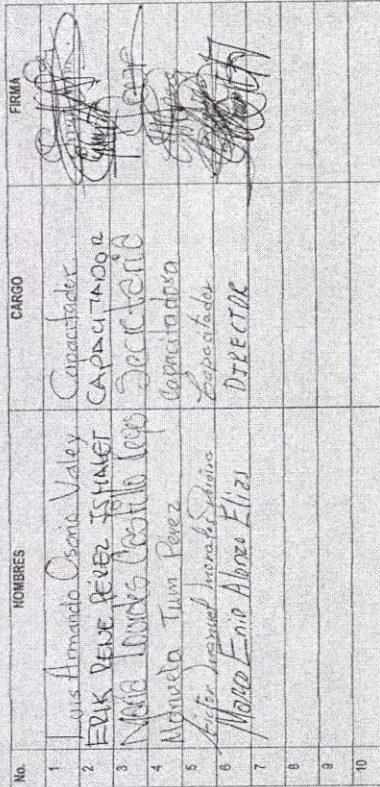 No. NOMBRES CARGO FIRMA
1 Luis Armando Osorio Valey Capacitador
2 ERIK RENE PÉREZ ISMALET CAPACITADOR
3 María Lourdes Castillo Secretaria
4 Manuela Tum Pérez Capacitadora
5 Manuel Morales Capacitador
6 Marco Enio Alonzo Elias DIRECTOR
7
8
9
10